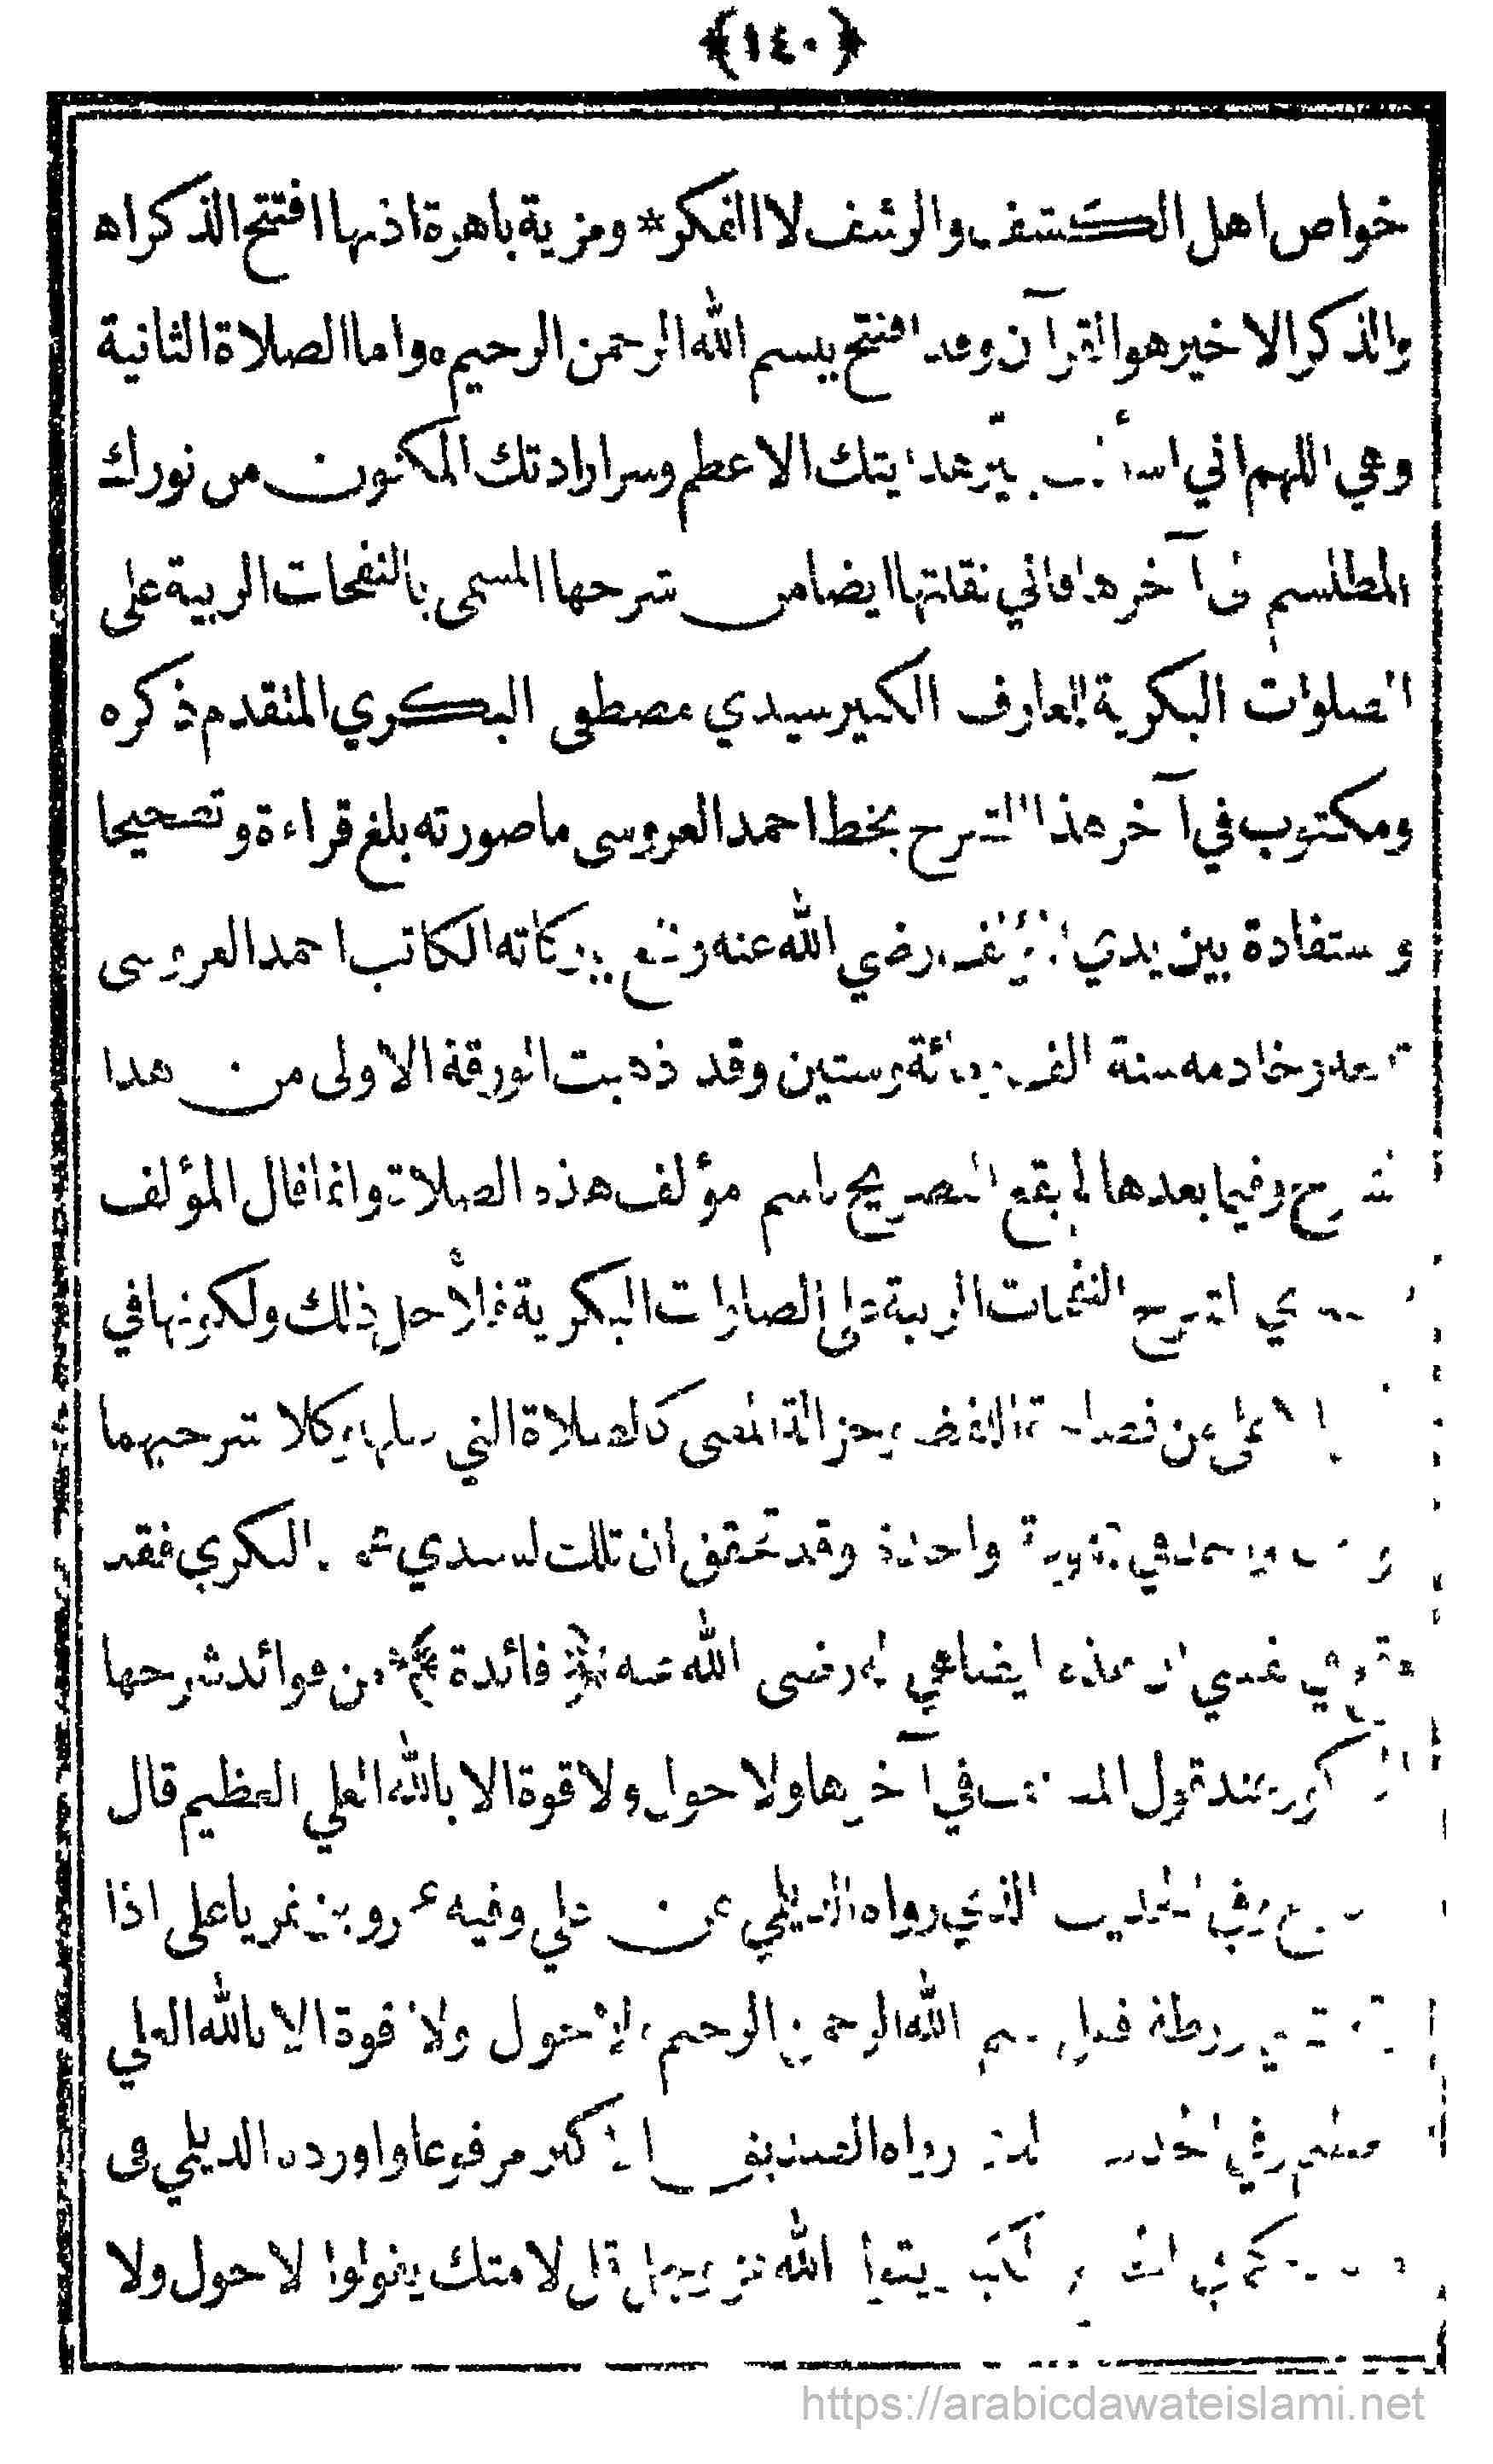 ﴿١٤٠﴾
خواص اهل الكشف والرشف لا الفكر * ومزية باهرة اذ بها افتتح الذكر اه
والذكر الاخير هو القرآن وقد افتتح ببسم الله الرحمن الرحيم ه واما الصلاة الثانية
وهي اللهم اني اسألك بنير هدايتك الاعظم وسر ارادتك المكنون من نورك
المطلسم الى آخرها فاني نقلتها ايضا من شرحها المسمى بالنفحات الربية على
الصلوات البكرية للعارف الكبير سيدي مصطفى البكري المتقدم ذكره
ومكتوب في آخر هذا الشرح بخط احمد العروسى ما صورته بلغ قراءة وتصحيحا
واستفادة بين يدي المؤلف رضي الله عنه ونفع ببركاته الكاتب احمد العروسى
وخادمه سنة الف ومائة وستين وقد ذهبت الورقة الاولى من هذا
الشرح وفيما بعدها لم يقع التصريح باسم مؤلف هذه الصلاة وانما قال المؤلف
الشرح النفحات الربية على الصلوات البكرية فلأجل ذلك ولكونها في
الاعلى من فصاحة اللفظ وجزالة المعنى كالصلاة التي قبلها وكلا شرحيهما
واحدة وقد تحقق ان تلك لسيدي محمد البكري فقد
نفسي ان هذه ايضا هي له رضى الله عنه ﴿فائدة﴾ من فوائد شرحها
المذكور عند قول المصنف في آخرها ولا حول ولا قوة الا بالله العلي العظيم قال
وفي الحديث الذي رواه الديلمي عن علي وفيه عمرو بن نمر يا على اذا
ورطة فقل بسم الله الرحمن الرحيم ولا حول ولا قوة الا بالله العلي
العظيم وفي الحديث الذي رواه الصديق الاكبر مرفوعا واورده الديلمي فى
يقول الله عز وجل قل لامتك يقولوا لا حول ولا
https://arabicdawateislami.net